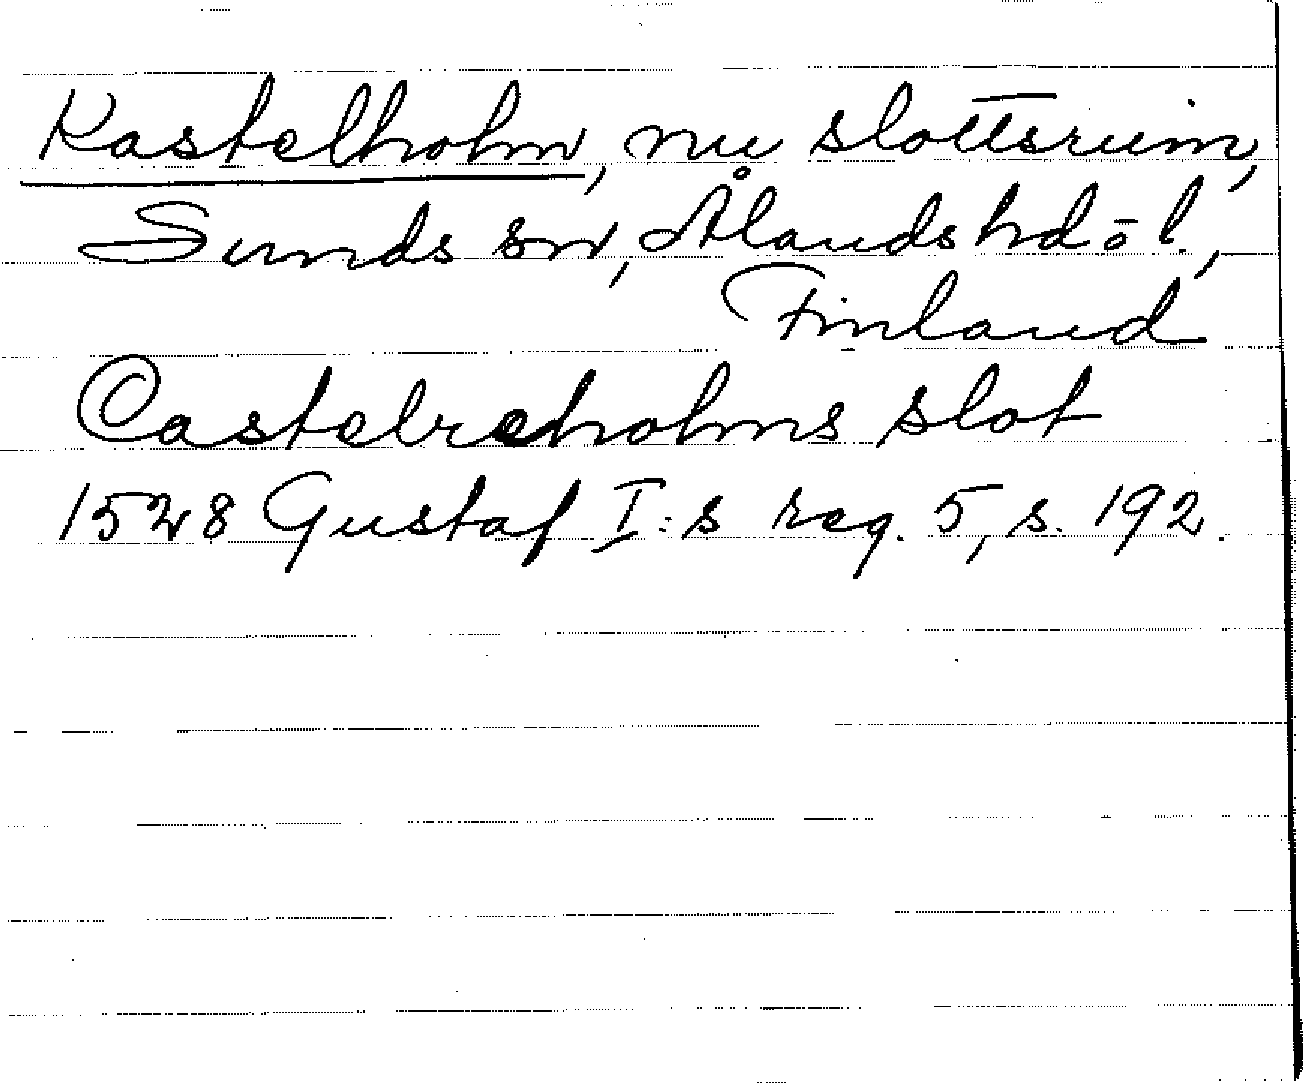 Kastelholm, nu slottsruin,
Sunds sn, Ålands hd o. l.,
Finland
Castelreholms slot
1528 Gustaf I:s reg. 5, s. 192.